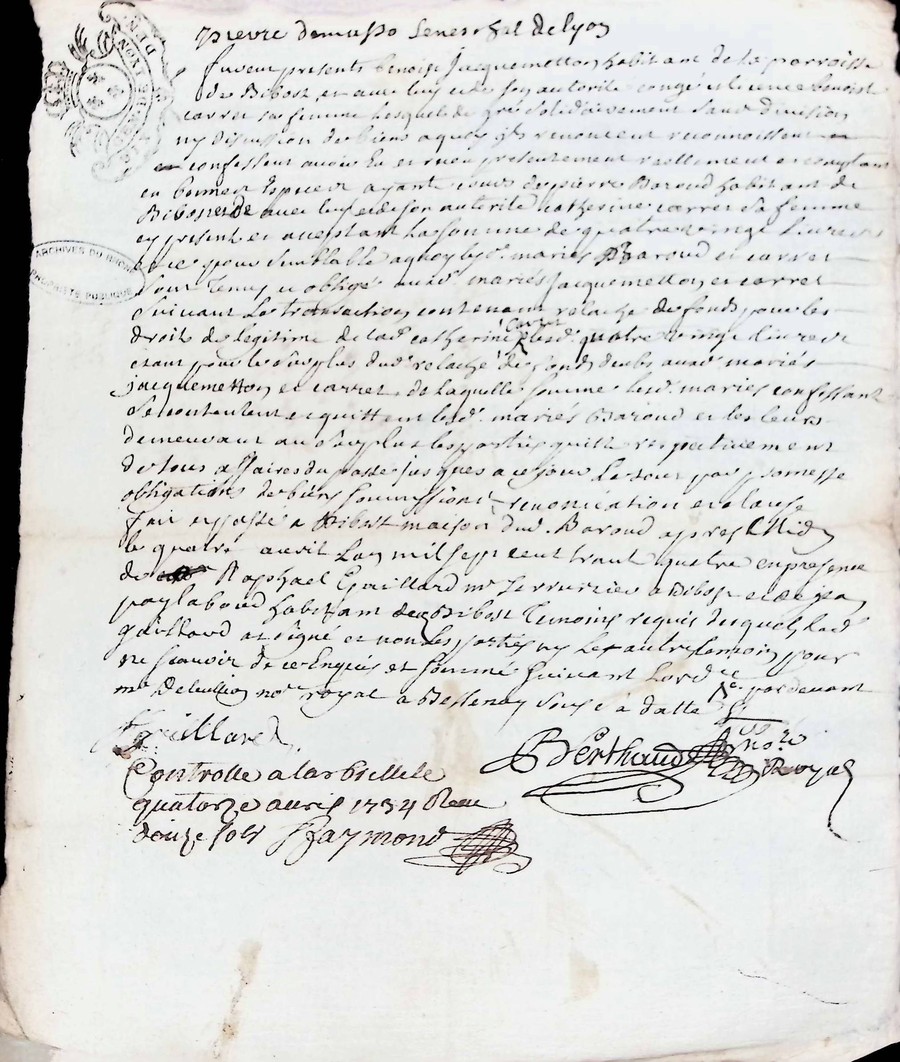 pierre demasso seneschal de lyon
furent presents benoist Jacquemetton habitant de la parroisse
de Bibost et avec luy et de son autorité congé et licence benoiste
carret sa femme lesquels de gré solidairement sans division
ny discussion de biens a quoy ils renoncent reconnoissent et
confessent avoir eu et receu presentement reellement et comptant
en bonnes especes ayant cours de pierre Baroud habitant de
Bibost et de avec luy et de son autorité catherine carret sa femme
cy present et acceptant la somme de quatre vingt livres
et ce pour semblable a quoy lesd. mariés Baroud et carret
sont tenus et obligé auxd. mariés Jacquemetton et carret
suivant la transaction contenant relache de fonds pour les
droit de legitime de lad. catherine carret lesd. quatre vingt livres
etant pour le surplus dud. relaché de fonds deubs auxd. mariés
jacquemetton et carret de laquelle somme lesd. mariés confessant
se contentent et quittent lesd. mariés Baroud et les leurs
demeurant au surplus les parties quitte respectivement
de tous affaires du passé jusques a ce jour le tout par promesse
obligations de biens soumissions renonciation et clause
fait et passé a Bibost maison dud. Baroud apres Midy
le quatre avril l'an mil sept cent trente quatre en presence
de Raphael Gaillard me serrurier a Bibost et de jean
paylaboud habitant de Bibost temoins requis desquels led.
gaillard a signé et non les parties ny l'autre temoin pour
ne scavoir de ce Enquis et sommé suivant l'ord.ce
me no.re royal a Bessenay sousé a datte Ne. par devant
Gaillard
Berthaud no.re
Royal
Controlle a larbresle le
quatorze avril 1734 Receu
douze sols Raymond
DE LYON
ARCHIVES DU RHONE
PROPRIETE PUBLIQUE